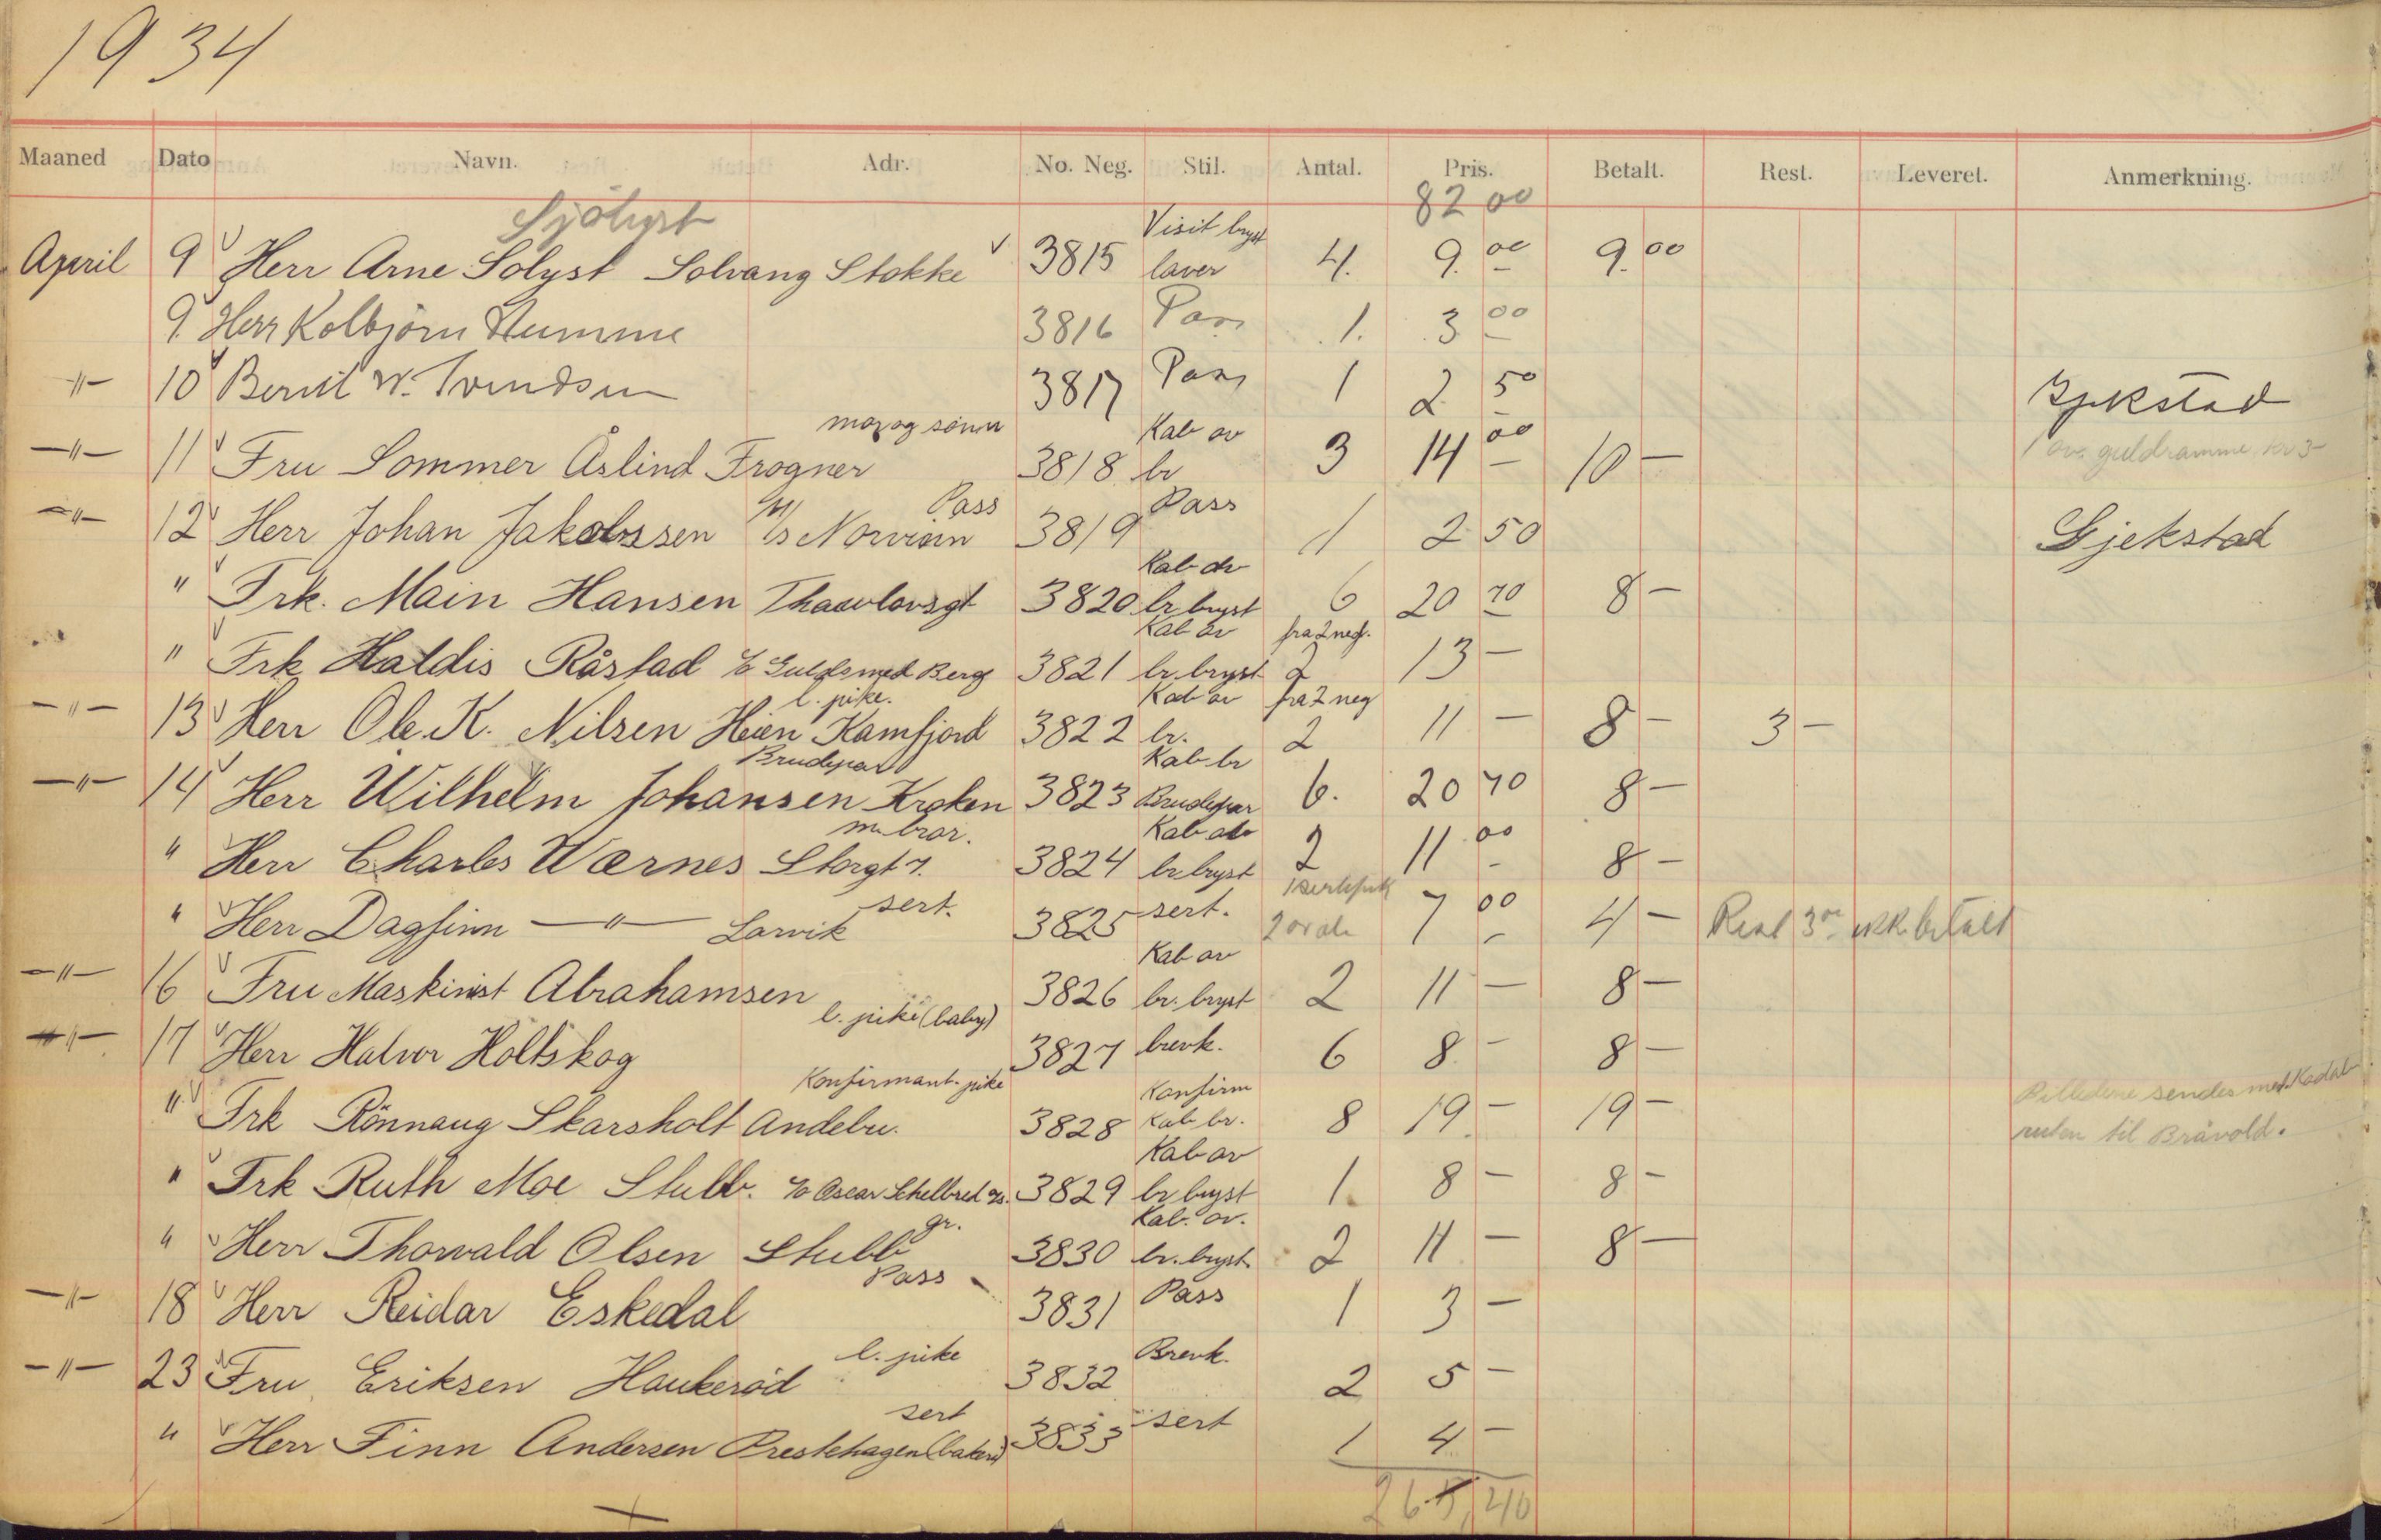 1934
Maaned Dato Navn. Adr. No. Neg. Stil. Antal. Pris. Betalt. Rest. Leveret. Anmerkning.
82 00
Sjölyst Visit bryst
April 9 Herr Arne Sölyst Solvang Stokke 3815 laver 4. 9.00 9.00
9. Herr Kolbjörn Numme 3816 Pass 1. 3 00
-"- 10 Berntt W. Svendsen 3817 Pass 1 2 50 Gjekstad
mor og sönn Kab av
-"- 11 Fru Sommer Åslind Frogner 3818 br 3 14 00 10 - 1 ov. guldramme kr 3-
Pass Pass
-"- 12 Herr Johan Jakobssen M/s Norvinn 3819 1 2 50 Gjekstad
Kab av
" Frk. Main Hansen Thaulovsgt 3820 br bryst 6 20 70 8 -
Kab av fra 2 neg.
" Frk Haldis Råstad c/o Guldsmed Berg 3821 br. bryst 2 13 -
l. pike. Kab av fra 2 neg
-"- 13 Herr Ole. K. Nilsen Hien Kamfjord 3822 br. 2 11 - 8 - 3 -
Brudepar Kab br
-"- 14 Herr Wilhelm Johansen Kroken 3823 Brudepar 6. 20 70 8 -
m. bror. Kab av
" Herr Charles Wærnes Storgt 7. 3824 br bryst 2 11 00 8 -
sert. 1 sert
" Herr Dagfinn -"- Larvik 3825 sert. 2 7 00 4 - Rest 3 00 ikke betalt
Kab av
-"- 16 Fru Maskinist Abrahamsen 3826 br. bryst 2 11 - 8 -
l. pike (baby)
-"- 17 Herr Halvor Holtskog 3827 brevk. 6 8 - 8 -
Konfirmant. pike Konfirm
" Frk Rönnaug Skarsholt Andebu. 3828 Kab br. 8 19 - 19 - Billedene sendes med Kodal
ruten til Bråvold.
Kab av
" Frk Ruth Moe Stubb. c/o Oscar Schelbred 3829 br bryst 1. 8 - 8 -
gr. Kab. av.
" Herr Thorvald Olsen Stubb 3830 br. bryst 2 11 - 8 -
Pass
-"- 18 Herr Reidar Eskedal 3831 Pass 1 3 -
l. pike Brevk.
-"- 23 Fru Eriksen Haukeröd 3832 2 5 -
sert
" Herr Finn Andersen Prestehagen (baker) 3833 sert 1 4 -
265,40